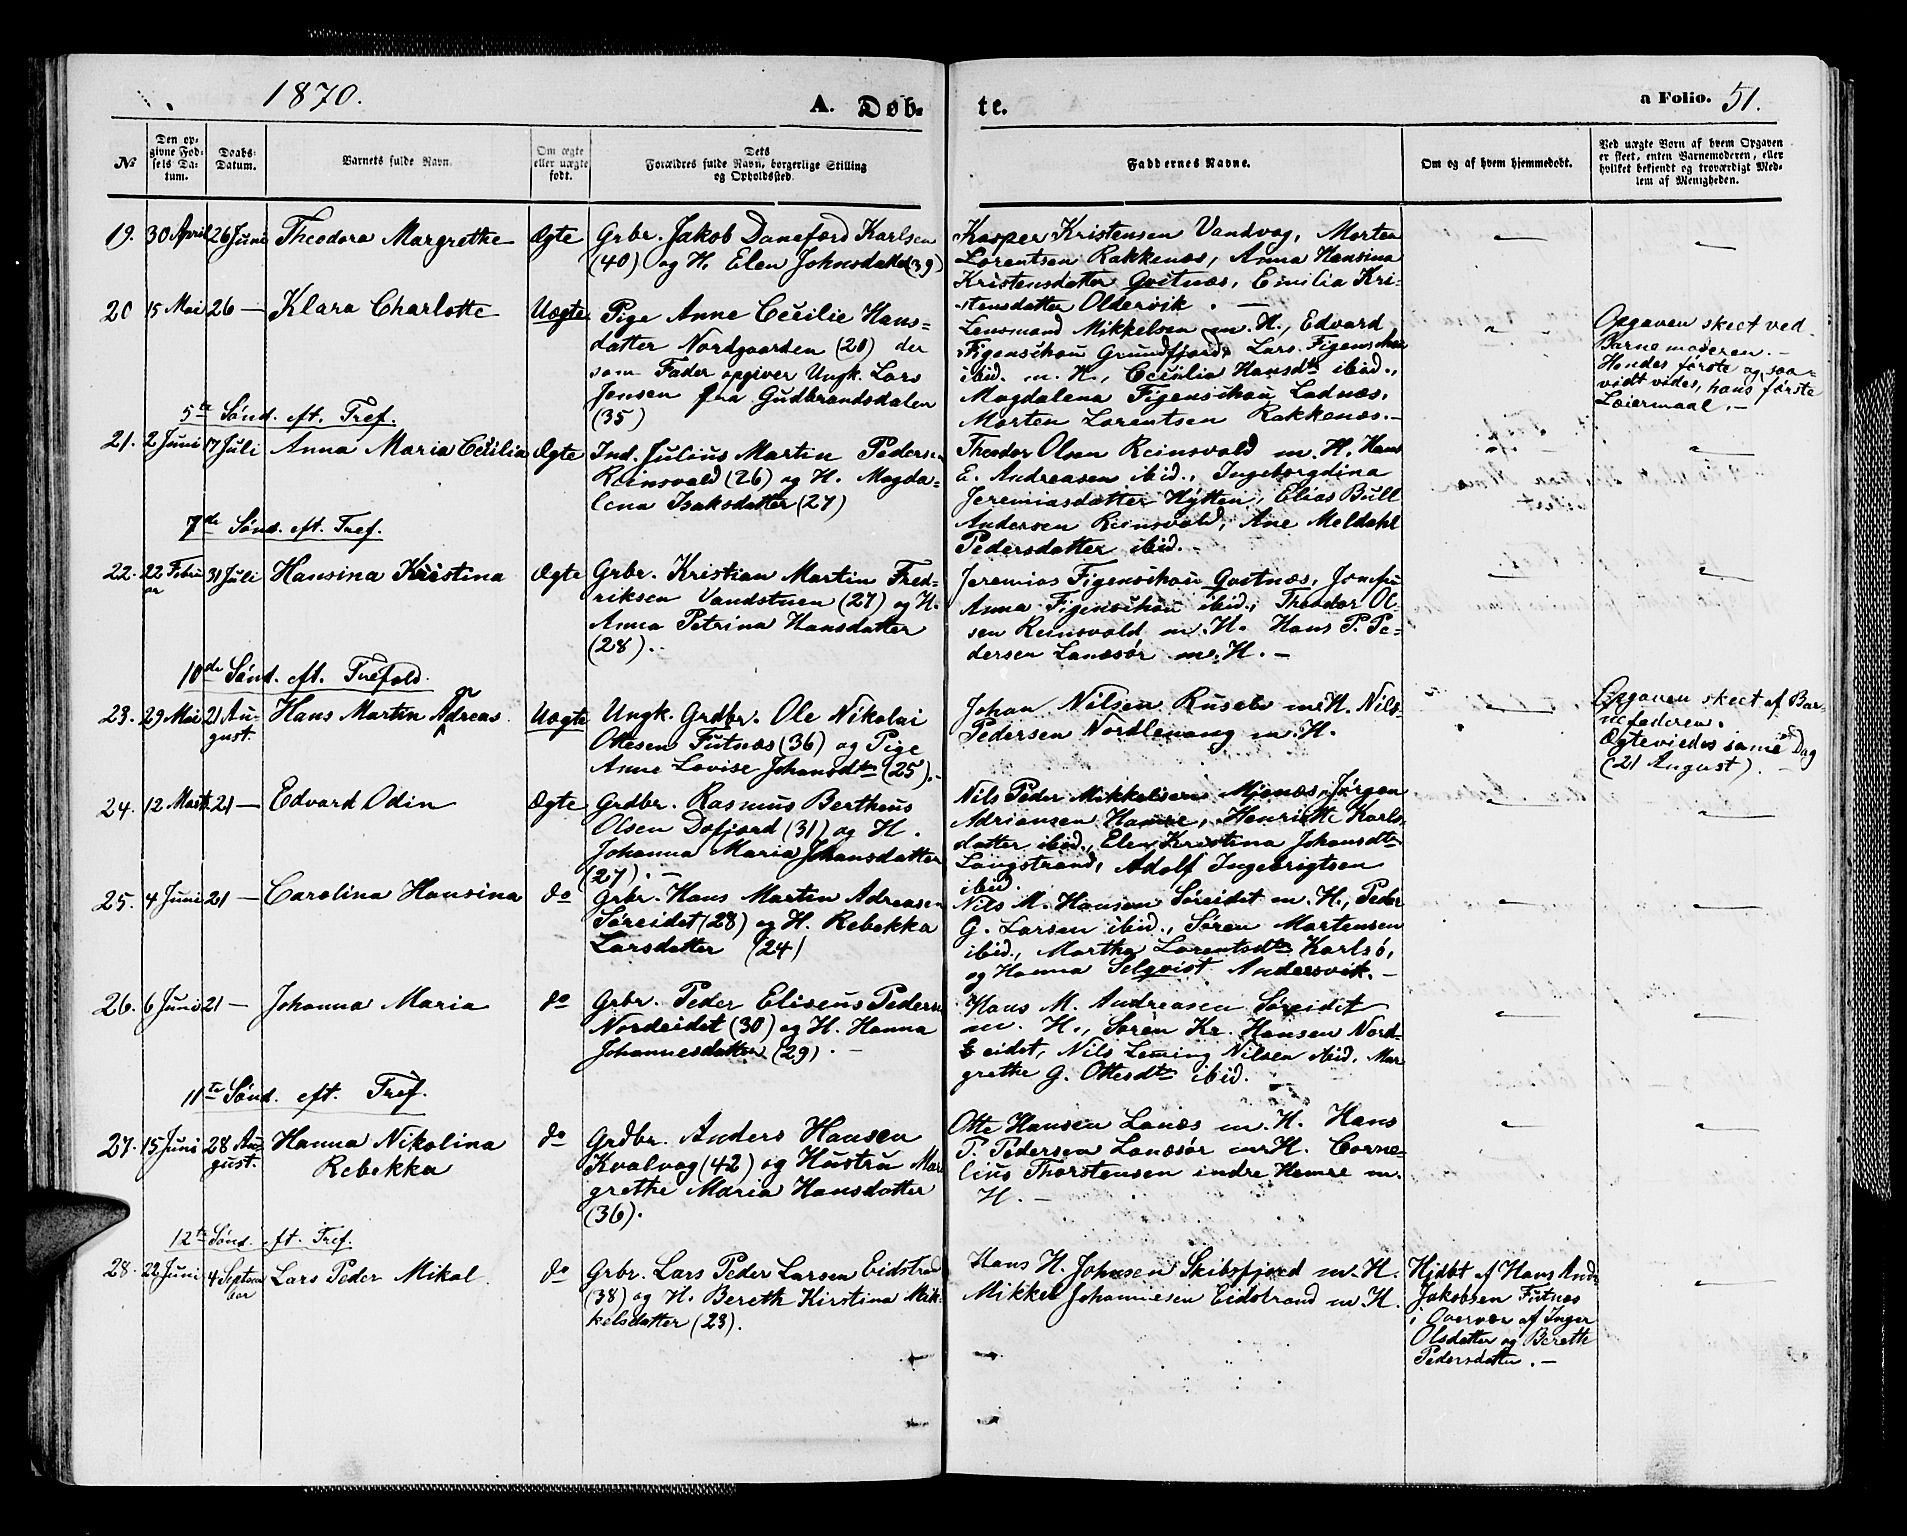 1870.
A. Døb-
te.
a Folio. 51.
No
Den op-
givne Fød-
sels Da-
tum.
Daabs-
Datum.
Barnets fulde Navn.
Om ægte
eller uægte
født.
Dets
Forældres fulde Navn, borgerlige Stilling
og Opholdssted.
Faddernes Navne.
Om og af hvem hjemmedøbt.
Ved uægte Børn af hvem Opgaven
er skeet, enten Barnemoderen, eller
hvilket bekjendt og troværdigt Med-
lem af Menigheden.
19. 30 April 26 Juni Theodora Margrethe Ægte
Grbr. Jakob Danefærd Karlsen
(40) og H. Elen Johnsdatter (39)
Kasper Kristensen Vandvag, Morten
Lorentsen Rakkenæs, Anna Hansina
Kristensdatter Qvitnæs, Emilia Kri-
stensdatter Oldervik. —
20 15 Mai 26 — Klara Charlotte Uægte
Pige Anne Cecilie Hans-
datter Nordgaarden (20) der
som Fader opgiver Ungk. Lars
Jensen fra Gudbrandsdalen
(35)
Lensmand Mikkelsen m. H., Edvard
Figenschau Grundfjord, Lars Figenschau
ibid. m. H., Cecilia Hansdtr ibid.,
Magdalena Figenschau Ladnæs,
Morten Lorentsen Rakkenæs. —
Opgaven skeet ved
Barnemoderen. —
Hendes første og saa-
vidt vides, hans første
Leiermaal. —
5te Sønd. eft. Tref.
21. 2 Juni 17 Juli Anna Maria Cecilia Ægte
Ind. Julius Martin Pedersen
Reinsvold (26) og H. Magda-
lena Isaksdatter (27)
Theodor Olsen Reinsvold m. H. Hans
E. Andreasen ibid., Ingeborgdina
Jeremiasdatter Hytten, Elias Bull
Andersen Reinsvold, Ane Meldahl
Pedersdatter ibid. —
7de Sønd. eft. Tref.
22. 22 Febru
ar 31 Juli Hansina Kristina Ægte
Grbr. Kristian Martin Fred-
riksen Vandstuen (27) og H.
Anna Petrina Hansdatter
(28).
Jeremias Figenschau Qvitnæs, Josefu
Anna Figenschau ibid., Theodor Ol-
sen Reinsvold m. H. Hans P. Pe-
dersen Lanesør m. H. —
10de Sønd. eft. Trefold.
23. 29 Mai 21 Au-
gust. Hans Martin Adreas n Uægte
Ungk. Grdbr. Ole Nikolai
Ottesen Futnæs (36) og Pige
Anne Lovise Johansdtr (25). —
Johan Nilsen Rusele m. H. Nils
Pedersen Nordlenang m. H.
Opgaven skeet af Bar-
nefaderen.
Ægteviedes same Dag
(21 August).
24. 12 Marts 21 — Edvard Odin Ægte
Grdbr. Rasmus Bertheus
Olsen Dafjord (31) og H.
Johanna Maria Johansdatter
(27). —
Nils Peder Mikkelsen Mjønes, Jørgen
Adriansen Hamre, Henriette Karls
datter ibid., Elen Kristina Johansdtr
Langstrand, Adolf Ingebrigtsen
ibid.
25. 4 Juni 21 — Carolina Hansina do
Grbr. Hans Martin Adreasen
Søreidet (28) og H. Rebekka
Larsdatter (24)
Nils M. Hansen Søreidet m. H., Peder
G. Larsen ibid., Søren Martensen
ibid., Martha Lorentsdtr Karlsø,
og Hanna Selqvist Andersvik. —
26. 6 Juni 21 — Johanna Maria do
Grbr. Peder Eliseus Peders
Nordeidet (30) og H. Hanna
Johannesdatter (29). —
Hans M. Andreasen Søreidet
m. H., Søren Kr. Hansen Nord
eidet, Nils Leming Nilsen ibid. Mar
grethe G. Ottesdtr ibid.
11te Sønd. eft. Tref.
27. 15 Juni 28 Au-
gust. Hanna Nikolina
Rebekka do
Grdbr. Anders Hansen
Kvalvag (42) og Hustru Mar
grethe Maria Hansdatter
(36).
Otte Hansen Lanæs m. H. Hans
P. Pedersen Lanesør m. H. Corne-
lius Thorstensen indre Hemre m.
H. —
12te Sønd. eft. Tref.
28. 22 Juni 4 Septem
ber Lars Peder Mikal do
Grbr. Lars Peder Larsen Eidstrand
(38) og H. Bereth Kirstina Mik-
kelsdatter (23).
Hans H. Johnsen Skibsfjord m. H.
Mikkel Johannesen Eidstrand m. H.
Hjdbt af Hans And
Jakobsen Futnæs
i Overvær af Inger
Olsdatter og Berethe
Pedersdatter. —